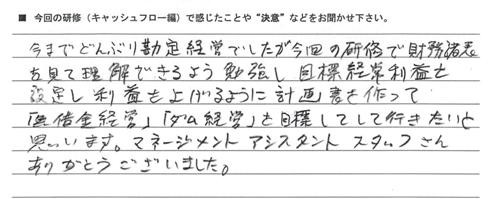 ■ 今回の研修（キャッシュフロー編）で感じたことや“決意”などをお聞かせ下さい。
今までどんぶり勘定経営でしたが今回の研修で財務諸表
を見て理解できるよう勉強し目標経常利益を
設定し利益を上げるように計画書を作って
「無借金経営」「ダム経営」を目標してして行きたいと
思います。マネージメントアシスタントスタッフさん
ありがとうございました。